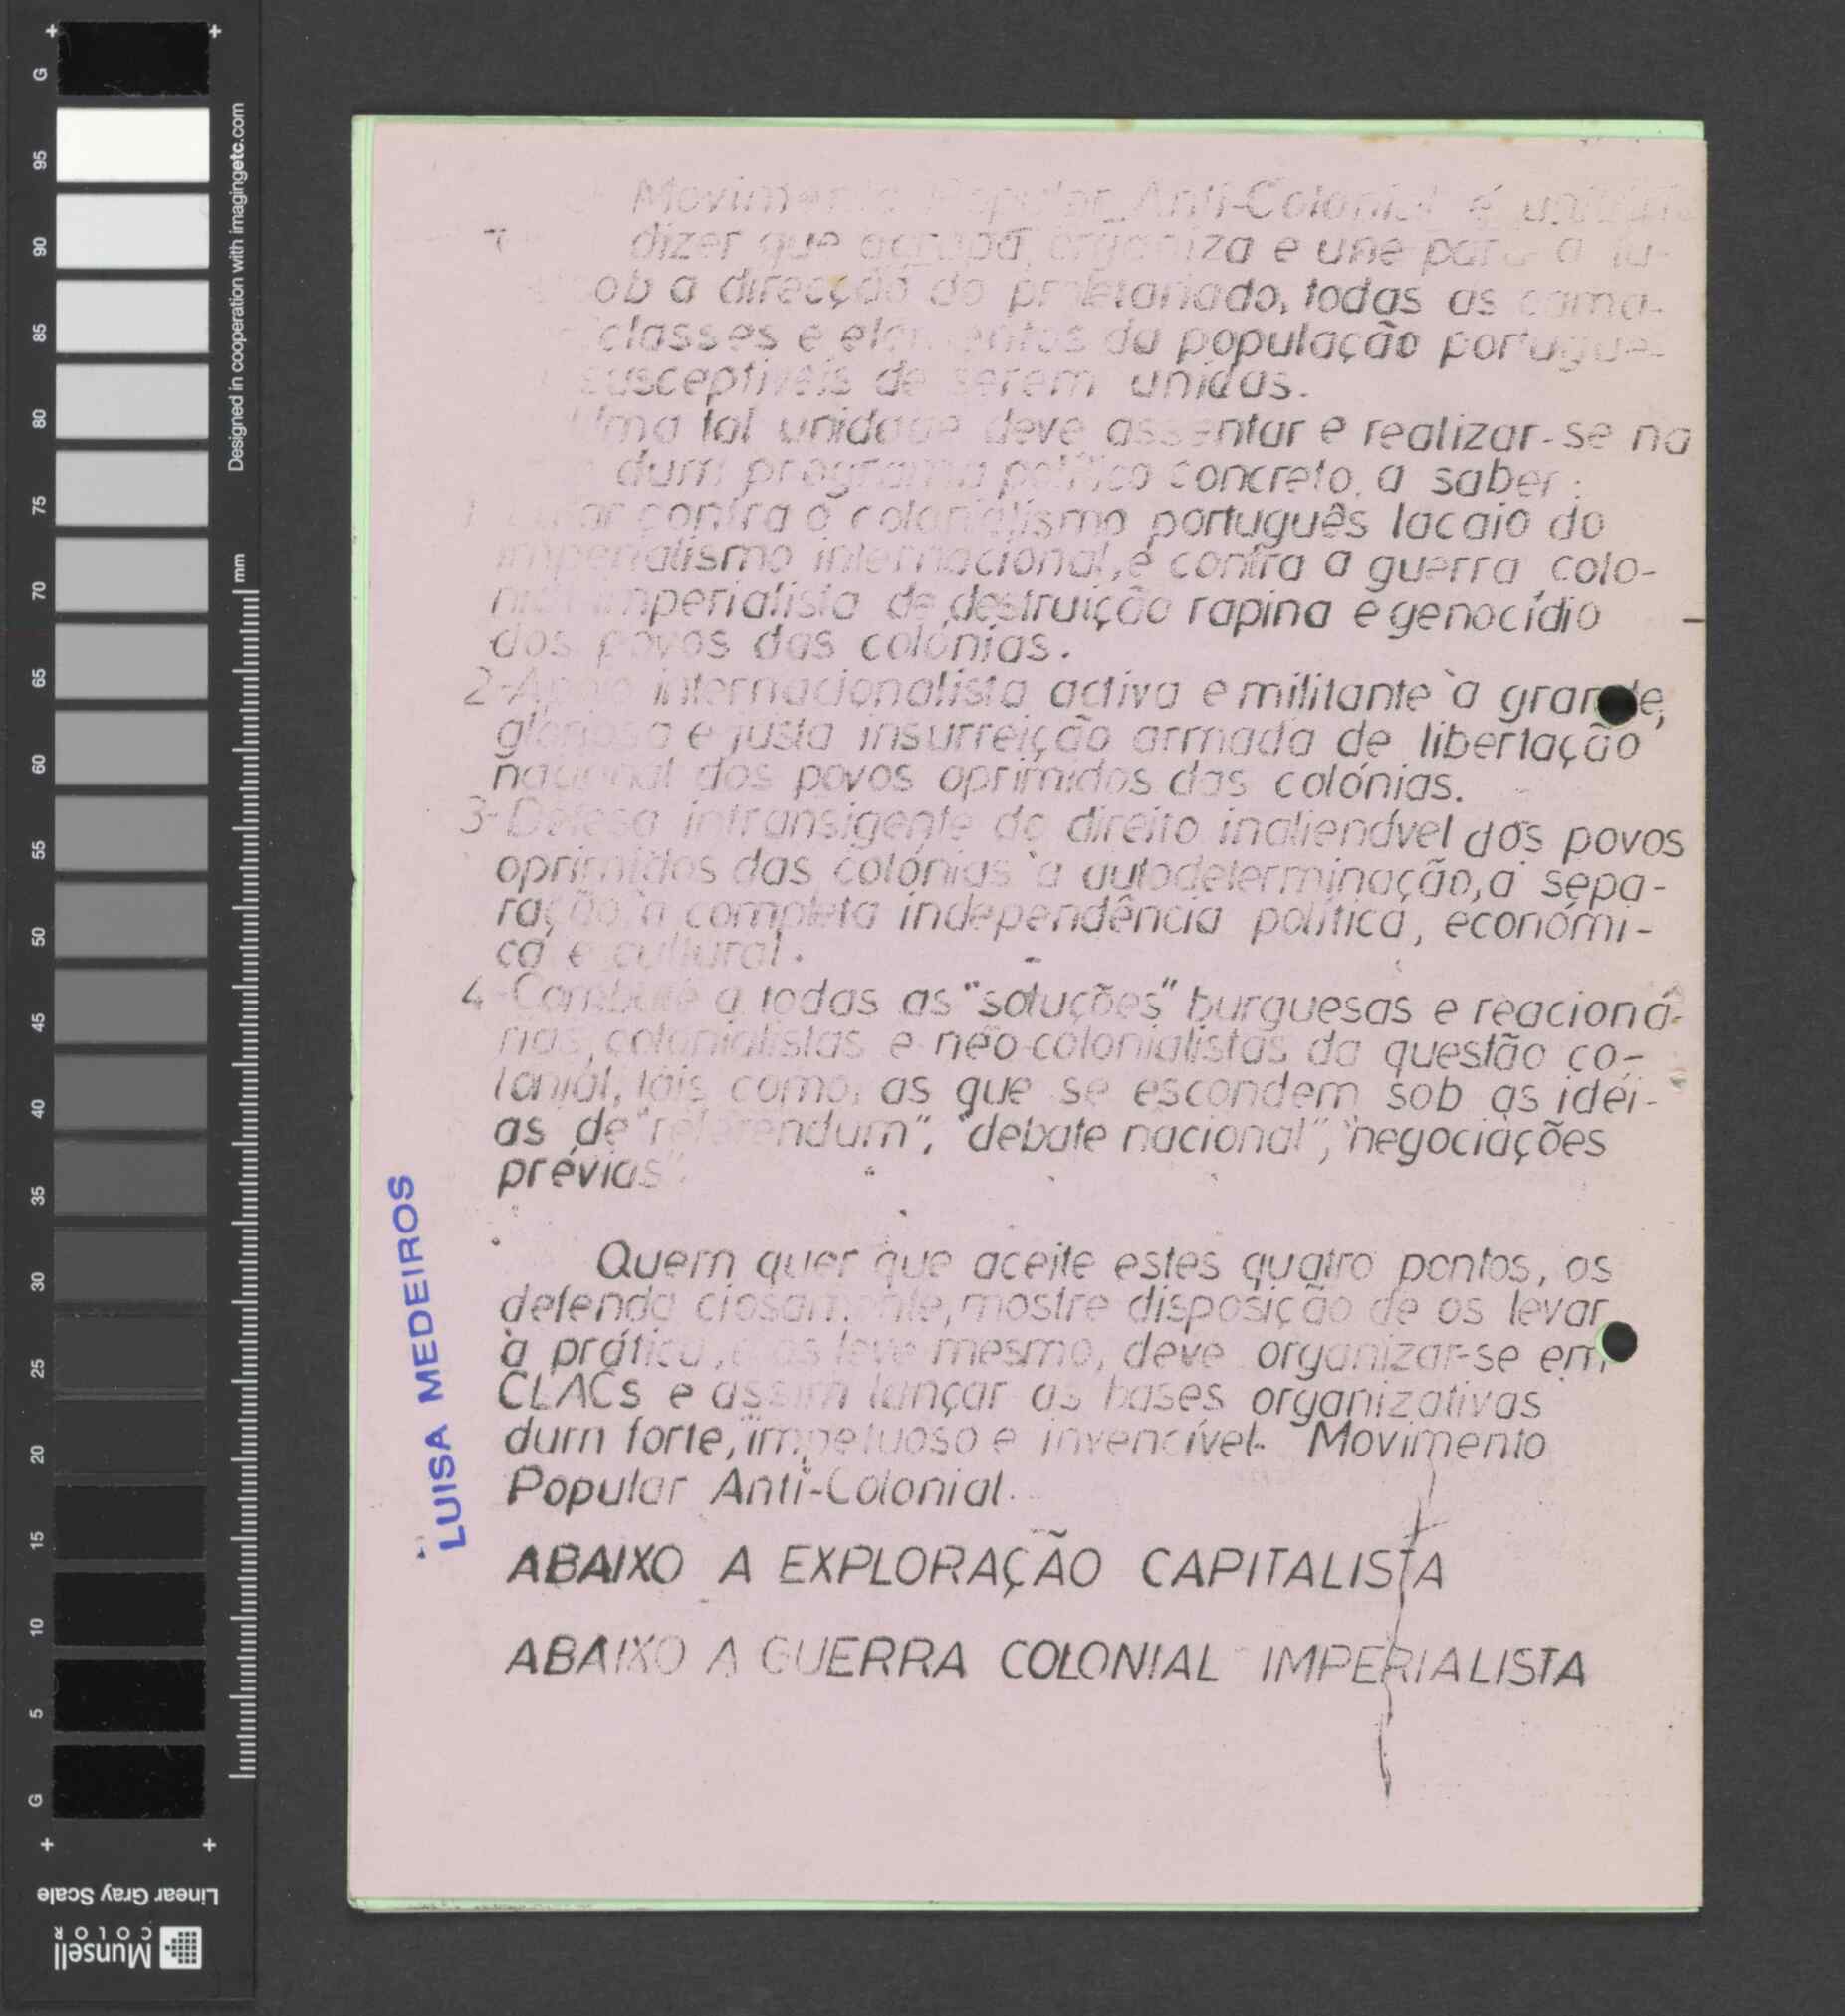 Movimento Popular Anti-Colonial é
dizer que agrupa, organiza e une para a lu-
ob a direcção do proletariado, todas as cama-
classes e elementos da população portugue-
susceptíveis de serem unidas.
Uma tal unidade deve assentar e realizar-se na
dum programa político concreto, a saber:
1 Lutar contra o colonialismo português lacaio do
imperialismo internacional, e contra a guerra colo-
nial-imperialista de destruição rapina e genocídio
dos povos das colónias.
2-Apoio internacionalista activa e militante à grande,
gloriosa e justa insurreição armada de libertação
nacional dos povos oprimidos das colónias.
3-Defesa intransigente do direito inaliendvel dos povos
oprimidos das colónias à autodeterminação, à sepa-
ração à completa independência política, económi-
ca e cultural.
4-Combate a todas as "soluções" burguesas e reacioná-
rias, colonialistas e neo-colonialistas da questão co-
lonial, tais como, as que se escondem sob as idei-
as de "referendum", "debate nacional", "negociações
prévias".
Quem quer que aceite estes quatro pontos, os
defenda ciosamente, mostre disposição de os levar
à prática, e os leve mesmo, deve organizar-se em
CLACs e assim lançar as bases organizativas
dum forte, impetuoso e invencível Movimento
Popular Anti-Colonial.
ABAIXO A EXPLORAÇÃO CAPITALISTA
ABAIXO A GUERRA COLONIAL IMPERIALISTA
LUISA MEDEIROS
G
95
90
85
80
75
70
65
60
55
50
45
40
35
30
25
20
15
10
5
G
Designed in cooperation with imagingetc.com
mm
Linear Gray Scale
Munsell
COLOR